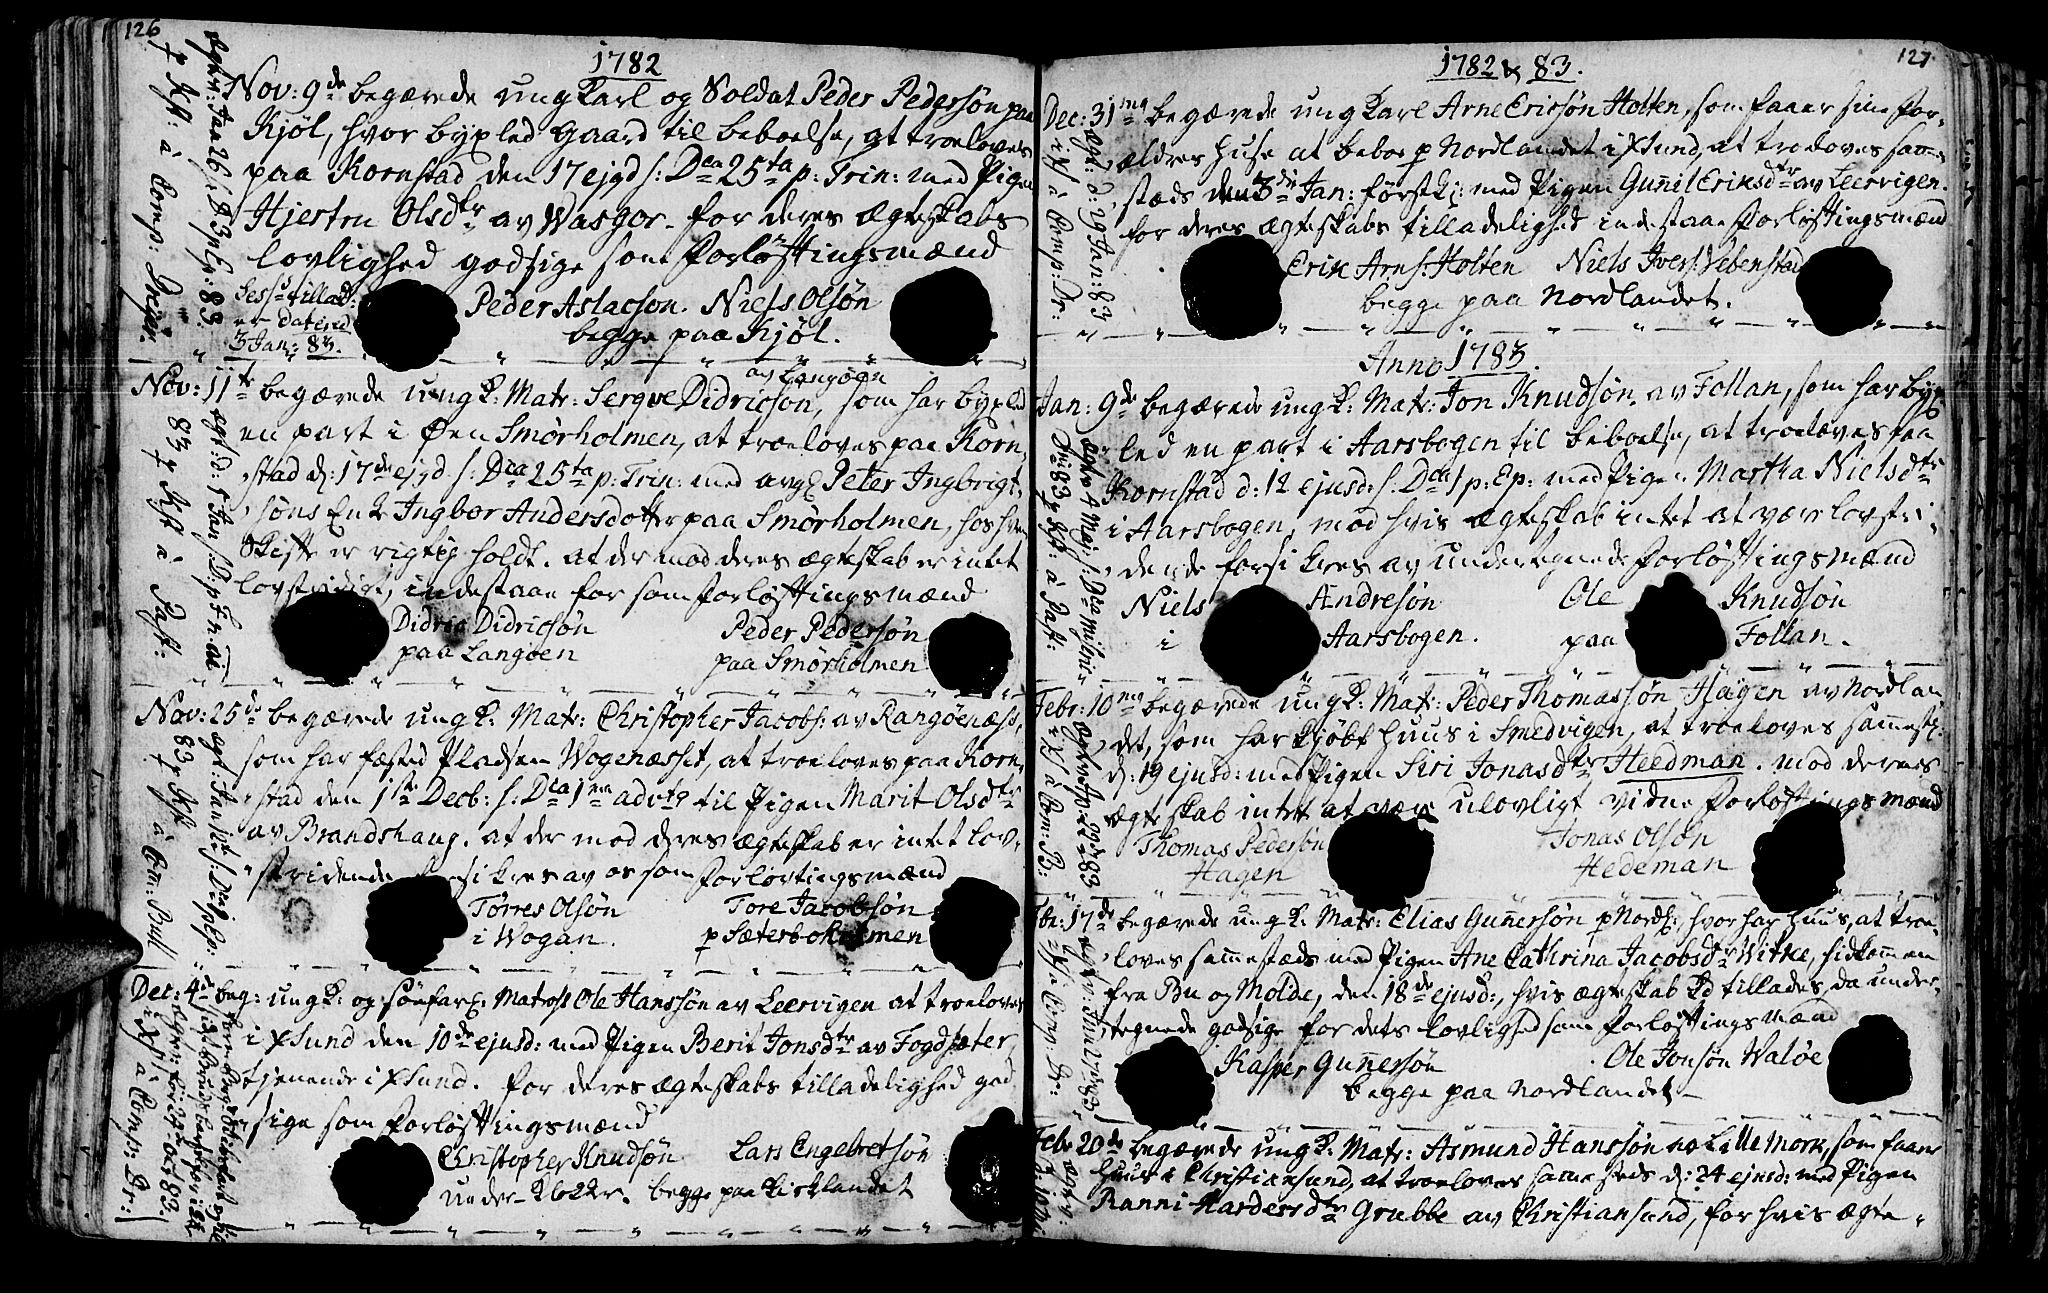 126
1782
Nov: 9de begærede ung Karl og Soldat Peder Pedersøn paa
Kjøl, hvor byxled Gaard til beboelse, at troeloves
paa Kornstad den 17 ejusd s: Dca 25ta p: Trin: med Pigen
Hjertru Olsdtr av Wasgor. for deres Ægteskabs
lovlighed godsige som Forløftingsmænd
Sess: tillad:
er dateret
3 Jan: 83.
Peder Aslacson. Niels Olsøn
begge paa Kjøl.
av Langøen
Nov: 11te begærede ungk: Matr: Sergve Didricson, som har byxled
en part i Øen Smørholmen, at troeloves paa Korn-
stad d: 17de ejusd s: Dca 25ta p: Trin: med avg: Peter Ingbrigt-
søns Enke Ingbor Andersdotter paa Smørholmen, hos hvem
Skifte er rigtig holdt. at der mod deres ægteskab er intet
lovstridigt, indestaae for som forløftingsmænd
Didric Didricsøn
paa Langøen
Peder Pedersøn
paa Smørholmen
Nov: 25de begærede ungk: Matr: Christopher Jacobs: av Rangøenæss,
som har fæsted Pladsen Wogenæsset, at troeloves paa Korn-
stad den 1ste Decb: s: Dca 1ma advtg til Pigen Marit Olsdtr
av Brandshaug. at der mod deres ægteskab er intet lov-
stridende forsikres av os som forlovtingsmænd
Torres Olsøn
i Wogan.
Tore Jacobsøn
p Sæterboholmen
Dec: 4de beg: ungk: og søefar: Matros Ole Hanssøn av Leervigen at troeloves
i Xsund den 10de ejusd: med Pigen Berit Jonsdtr av Fogdsæter,
tjenende i Xsund. for deres ægteskabs tilladelighed god-
sige som forløftingsmænd
Christopher Knudsøn
Lars Engebretsøn
begge paa Kirklandet
127.
1782 & 83.
Dec: 31ma begærede ung Karl Arne Ericsøn Holten, som faaer sine for-
ældres huse at beboe p Nordlandet i Xsund, at troeloves samme-
steds den 3die Jan: førstk: med Pigen Gunil Eriksdtr av Leervigen.
for deres ægteskabs tilladelighed indestaae forløftingsmænd
Erik Arns: Holten Niels Ivers: Vebenstad
begge paa Nordlandet.
Anno 1783.
Jan: 9de begærede ungk: Matr: Jon Knudsøn av Follan, som har byx-
led en part i Aarsbogen til beboelse, at troeloves paa
Kornstad d: 12 ejusd: s: Dca 1 p: Ep: med Pigen Martha Nielsdtr
i Aarsbogen, mod hvis ægteskab intet at være lovstri-
dende forsikres av undertegnede forløftingsmænd
Niels Andresøn
i Aarsbogen.
Ole Knudsøn
paa Follan.
Febr: 10ma begærede ungk: Matr: Peder Thomassøn Hagen av Nordlan-
det, som har kjøbt huus i Smedvigen, at troeloves sammest:
d: 19 ejusd: med Pigen Siri Jonasdtr Heedman. mod deres
ægteskab intet at være ulovligt vidne forløftingsmænd
Thomas Pedersøn
Hagen
Jonas Olsøn
Hedeman
Feb: 17de begærede ungk: Matr: Elias Gunnersøn p Nordl: hvor har huus, at troe-
loves sammesteds med Pigen Ane Cathrina Jacobsdtr Witke, sidst kommen
fra Bu og Molde, den 18de ejusd:, hvis ægteskab kd tillades, da under-
tegnede godsige for dets lovlighed som forløftingsmænd
Kasper Gunnersøn
Ole Jonsøn Waløe
begge paa Nordlandet
Febr 20de begærede ungk: Matr: Asmund Hanssøn av Lille Mork, som faaer
huus i Christiansund, at troeloves sammesteds d: 24 ejusd: med Pigen
Ranni Hardersdtr Grubbe av Christiansund, for hvis ægte-